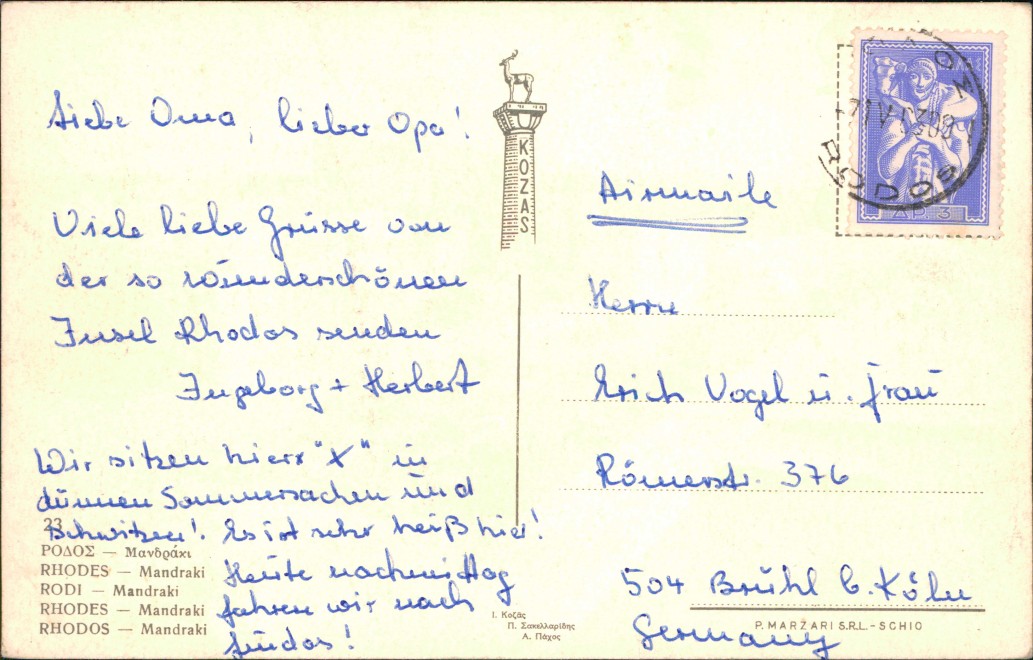 Liebe Oma, lieber Opa!
Viele liebe Grüsse von
der so wunderschönen
Insel Rhodos senden
Ingeborg + Herbert
Wir sitzen hier "X" in
dünnen Sommersachen und
schwitzen! Es ist sehr heiß hier!
Heute nachmittag
fahren wir nach
Lindos!
23
ΡΟΔΟΣ — Μανδράκι
RHODES — Mandraki
RODI — Mandraki
RHODES — Mandraki
RHODOS — Mandraki
KOZAS
Ι. Κοζάς
Π. Σακελλαρίδης
Α. Πάχος
ΡΟΔΟΣ
ΔΡ 3
Airmaile
Herrn
Erich Vogel u. Frau
Römerstr. 376
504 Brühl b. Köln
Germany
P. MARZARI S.R.L. - SCHIO